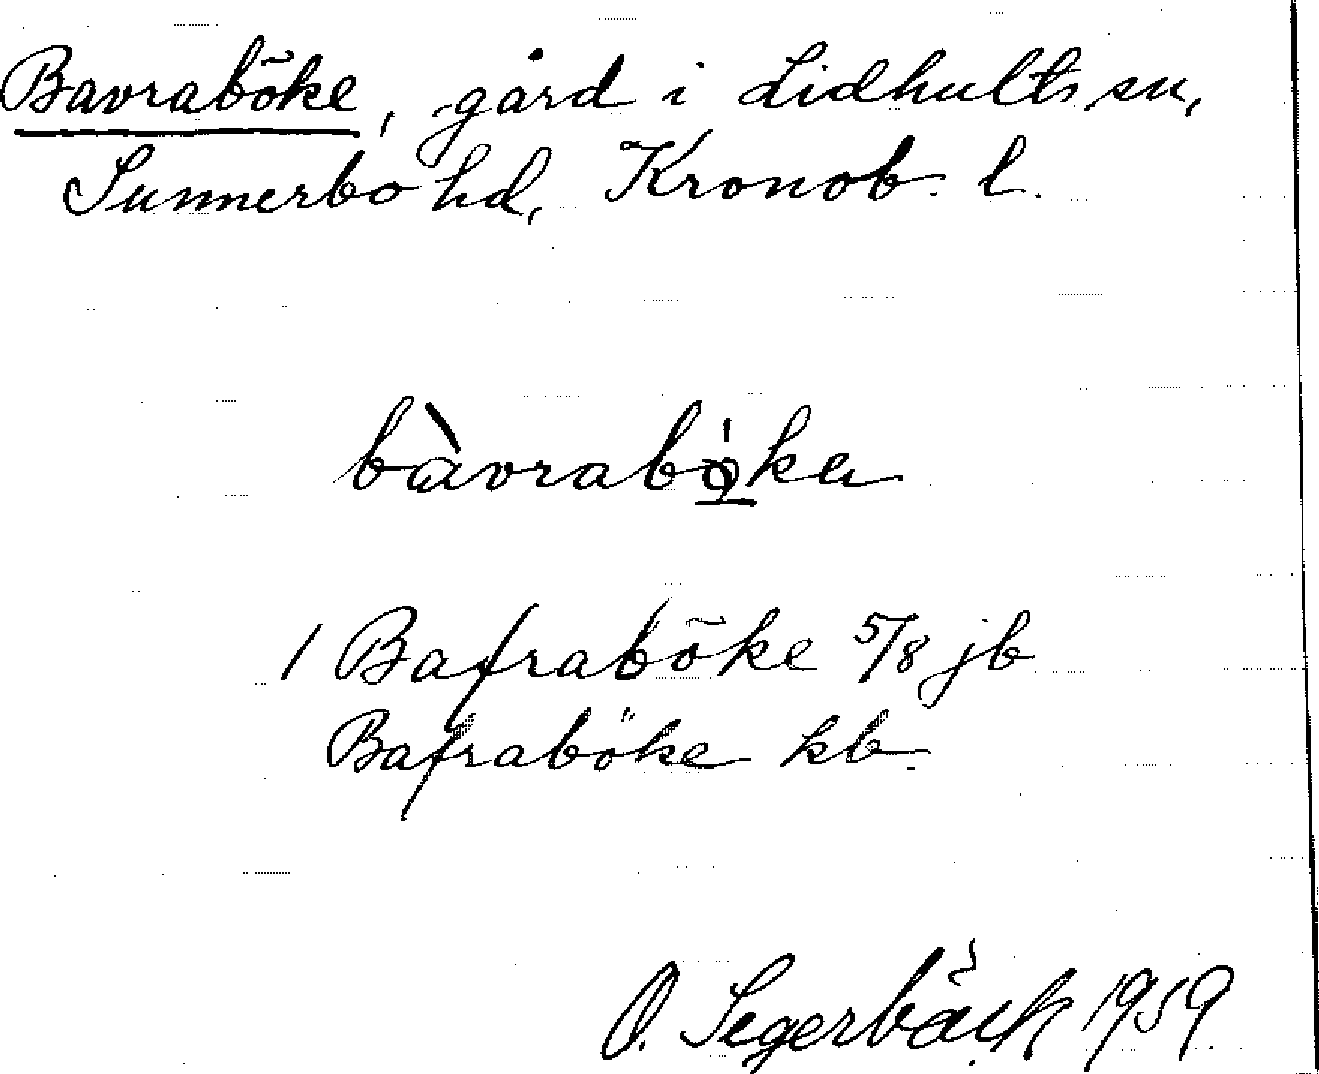 Bavraböke, gård i Lidhults sn,
Sunnerbo hd, Kronob. l.
bàvrabö̲́ka
1 Bafraböke 5/8 jb
Bafraböke kb.
O. Segerbäck 1959